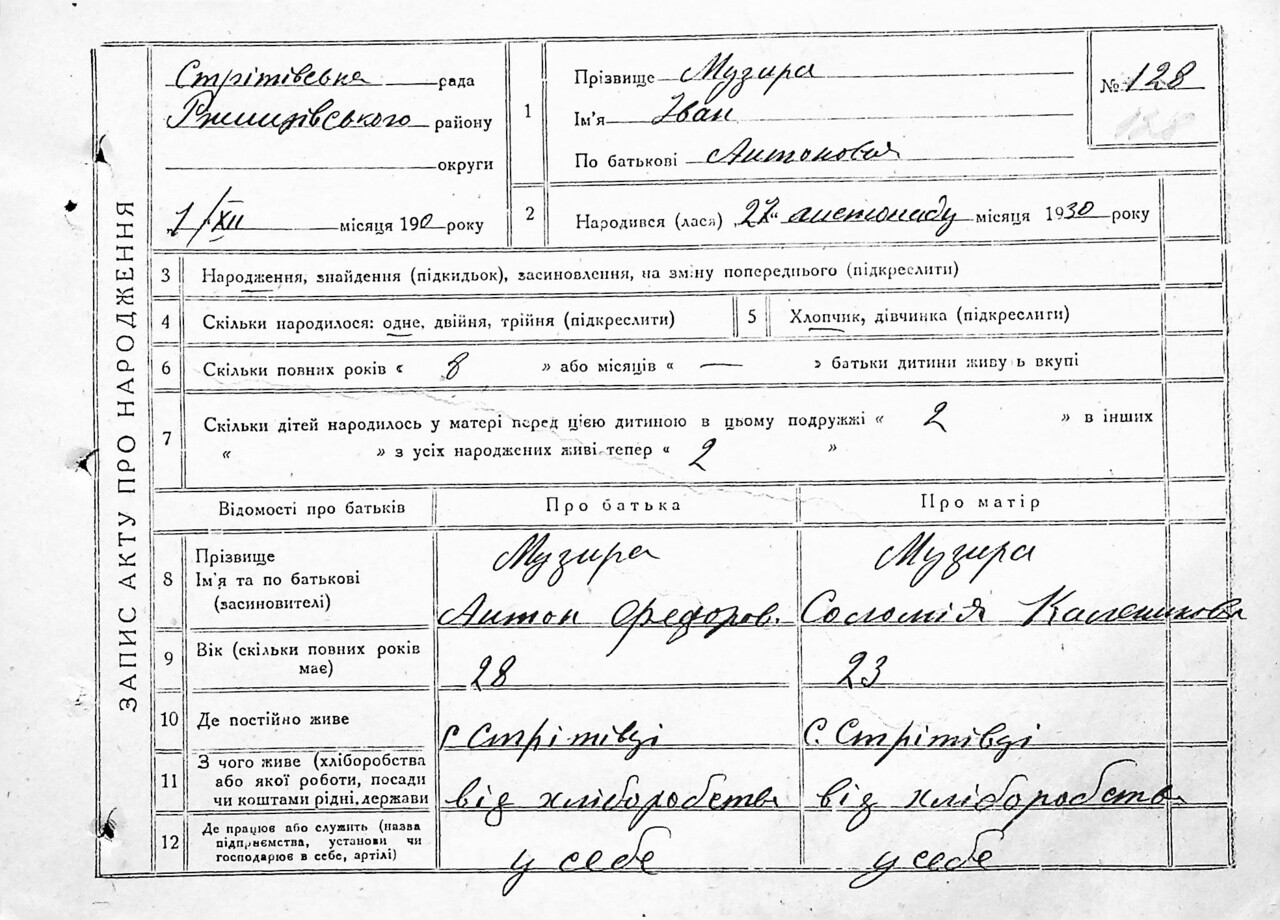 ЗАПИС АКТУ ПРО НАРОДЖЕННЯ
Стрітівська рада
Ржищівського району
округи
1/XII місяця 1900 року
1
Прізвище Музира
Ім'я Іван
По батькові Антонович
№ 128
128
2
Народився (лася) „27“ листопаду місяця 1930 року
3 Народження, знайдення (підкидьок), засиновлення, на зміну попереднього (підкреслити)
4 Скільки народилося: одне, двійня, трійня (підкреслити)
5 Хлопчик, дівчинка (підкреслити)
6 Скільки повних років « 8 » або місяців « — » батьки дитини живуть вкупі
7 Скільки дітей народилось у матері перед цією дитиною в цьому подружжі « 2 » в інших
« » з усіх народжених живі тепер « 2 »
Відомості про батьків Про батька Про матір
8 Прізвище Музира Музира
Ім'я та по батькові
(засиновителі) Антон Федоров. Соломія Каленикова
9 Вік (скільки повних років
має) 28 23
10 Де постійно живе с. Стрітівці С. Стрітівці
11 З чого живе (хліборобства
або якої роботи, посади
чи коштами рідні, держави від хліборобства від хліборобства
12 Де працює або служить (назва
підприємства, установи чи
господарює в себе, артілі) у себе у себе